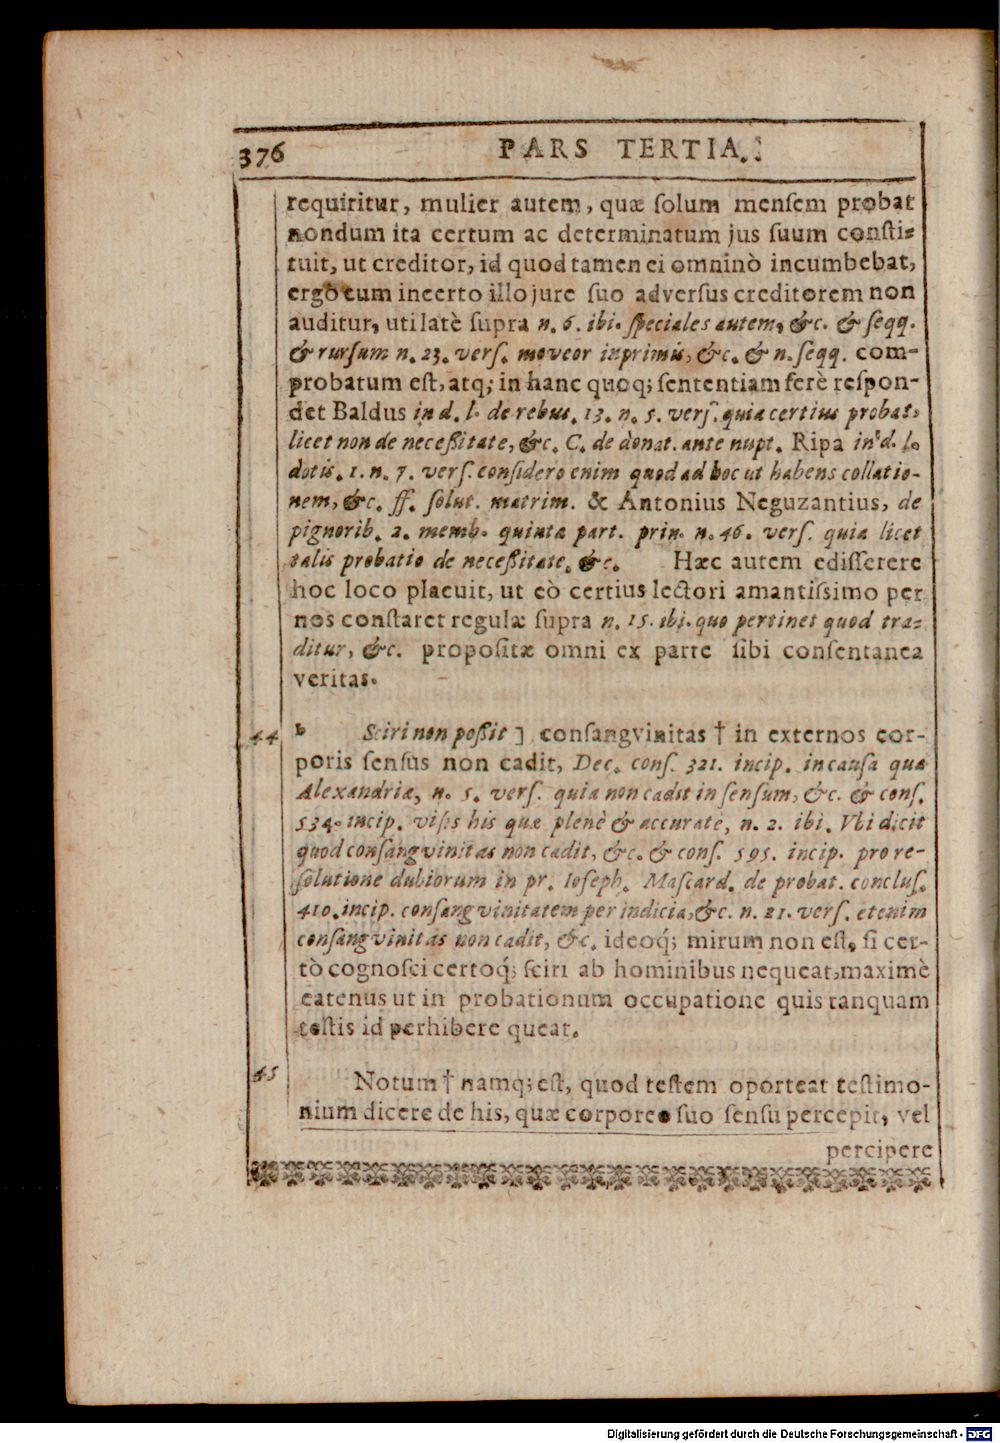 376 PARS TERTIA.
requiritur, mulier autem, quæ ſolum menſem probat
nondum ita certum ac determinatum jus ſuum conſti-
tuit, ut creditor, id quod tamen ei omninò incumbebat,
ergò cum incerto illo jure ſuo adverſus creditorem non
auditur, uti latè ſupra n. 6. ibi. ſpeciales autem, &c. & ſeqq.
& rurſum n. 23. verſ. moveor inprimis, &c. & n. ſeqq. com-
probatum eſt, atq; in hanc quoq; ſententiam ferè reſpon-
det Baldus in d. l. de rebus. 13. n. 5. verſ. quia certius probat,
licet non de neceſſitate, &c. C. de donat. ante nupt. Ripa in d. l.
dotis. 1. n. 7. verſ. conſidero enim quod ad hoc ut habens collatio-
nem, &c. ff. ſolut. matrim. & Antonius Neguzantius, de
pignorib. 2. memb. quinta part. prin. n. 46. verſ. quia licet
talis probatio de neceſſitate. &c. Hæc autem ediſſerere
hoc loco placuit, ut eò certius lectori amantiſſimo per
nos conſtaret regulæ ſupra n. 15. ibi. quo pertinet quod tra-
ditur, &c. propoſitæ omni ex parte ſibi conſentanea
veritas.
44 b Sciri non poſſit ] conſangvinitas † in externos cor-
poris ſenſus non cadit, Dec. conſ. 321. incip. in cauſa quæ
Alexandriæ, n. 5. verſ. quia non cadit in ſenſum, &c. & conſ.
534. incip. viſis his quæ plenè & accuratè, n. 2. ibi. Vbi dicit
quod conſangvinitas non cadit, &c. & conſ. 595. incip. pro re-
ſolutione dubiorum in pr. Ioſeph. Maſcard. de probat. concluſ.
410. incip. conſangvinitatem per indicia, &c. n. 21. verſ. etenim
conſangvinitas non cadit, &c. ideoq́; mirum non eſt, ſi cer-
tò cognoſci certoq́; ſciri ab hominibus nequeat, maximè
eatenus ut in probationum occupatione quis tanquam
teſtis id perhibere queat.
45 Notum † namq; eſt, quod teſtem oporteat teſtimo-
nium dicere de his, quæ corporeo ſuo ſenſu percepit, vel
percipere
Digitalisierung gefördert durch die Deutsche Forschungsgemeinschaft - DFG